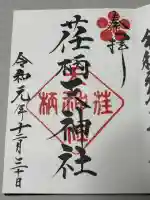 奉拝
荏柄天神社
令和元年十二月三十日